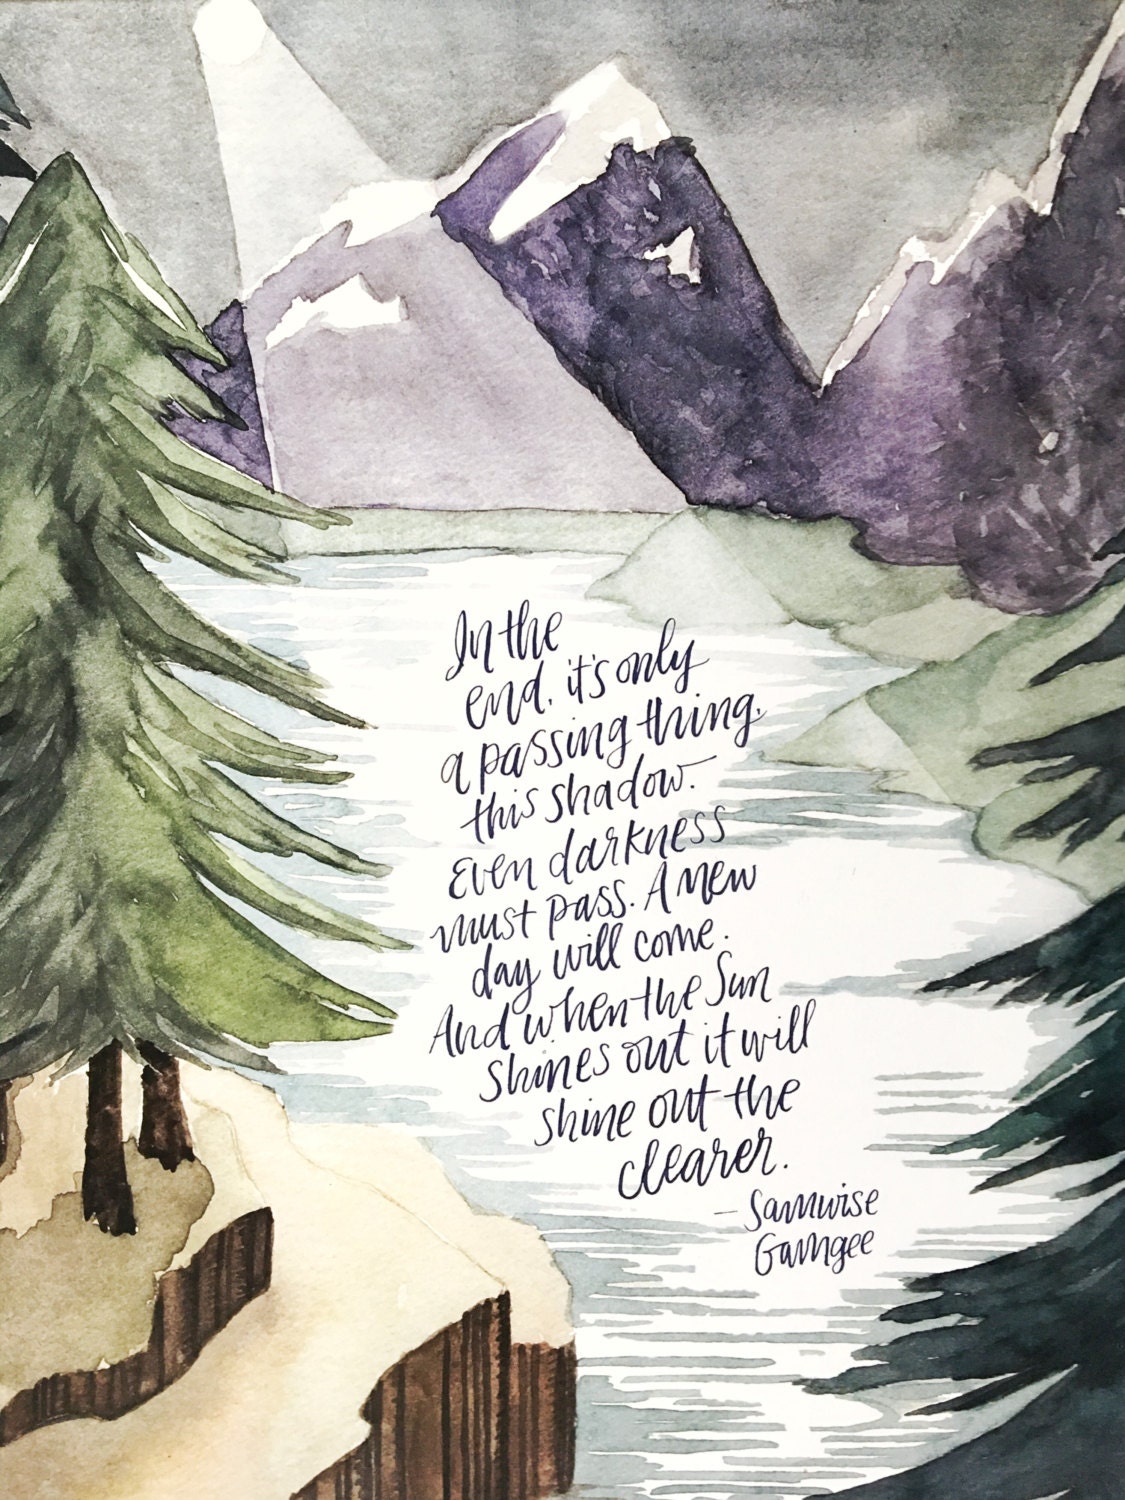 In the
end, it's only
a passing thing,
this shadow.
Even darkness
must pass. A new
day will come.
And when the Sun
shines out it will
shine out the
clearer.
- Samwise
Gamgee